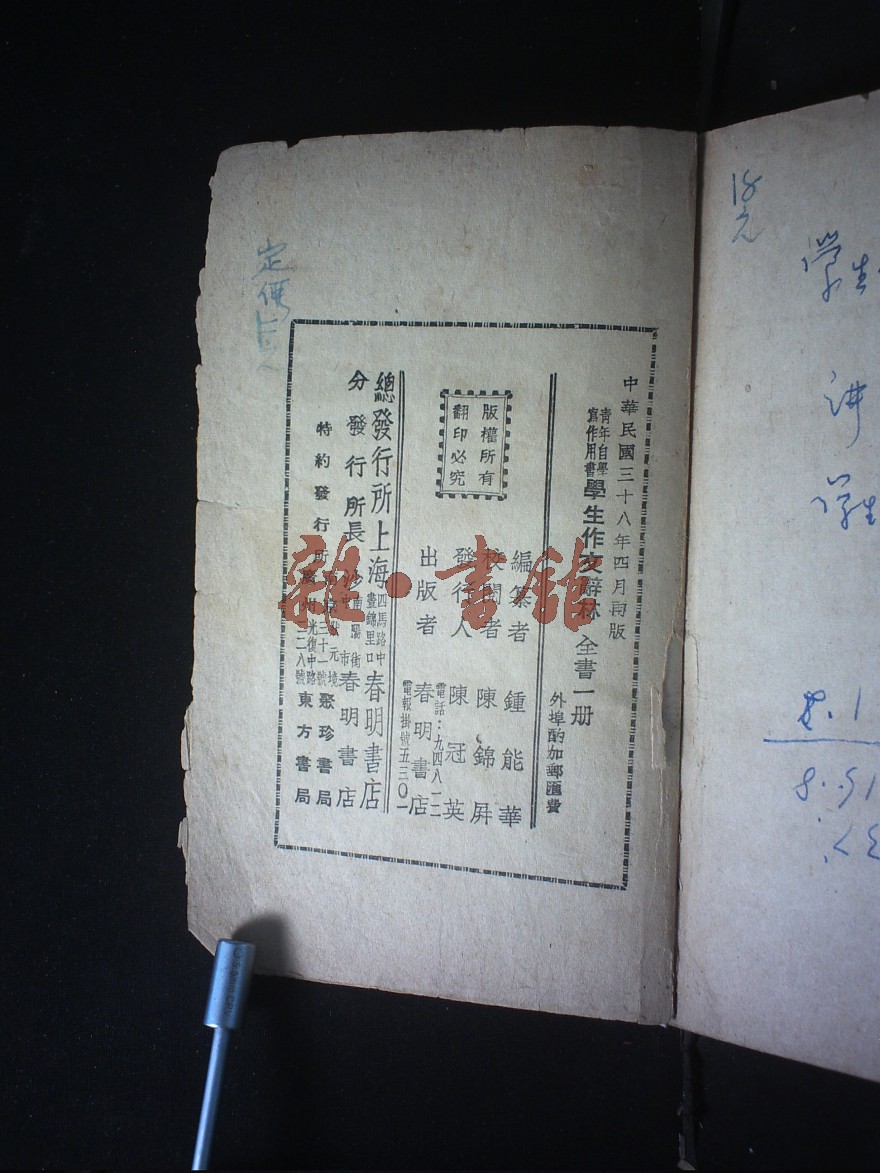 中華民國三十八年四月再版
青年自學
寫作用書
學生作文辭林 全書一冊
外埠酌加郵匯費
版權所有
翻印必究
編纂者 鍾能華
校閱者 陳錦屏
發行人 陳冠英
出版者 春明書店
電話：九四八一二
電報掛號五三〇一
總發行所上海 四馬路中
畫錦里口 春明書店
分發行所長沙 南陽街
市 春明書店
特約發行所
聚珍書局
廣州 光復中路
東方書局
雜·書館
定價
18元
學生
讲
學生